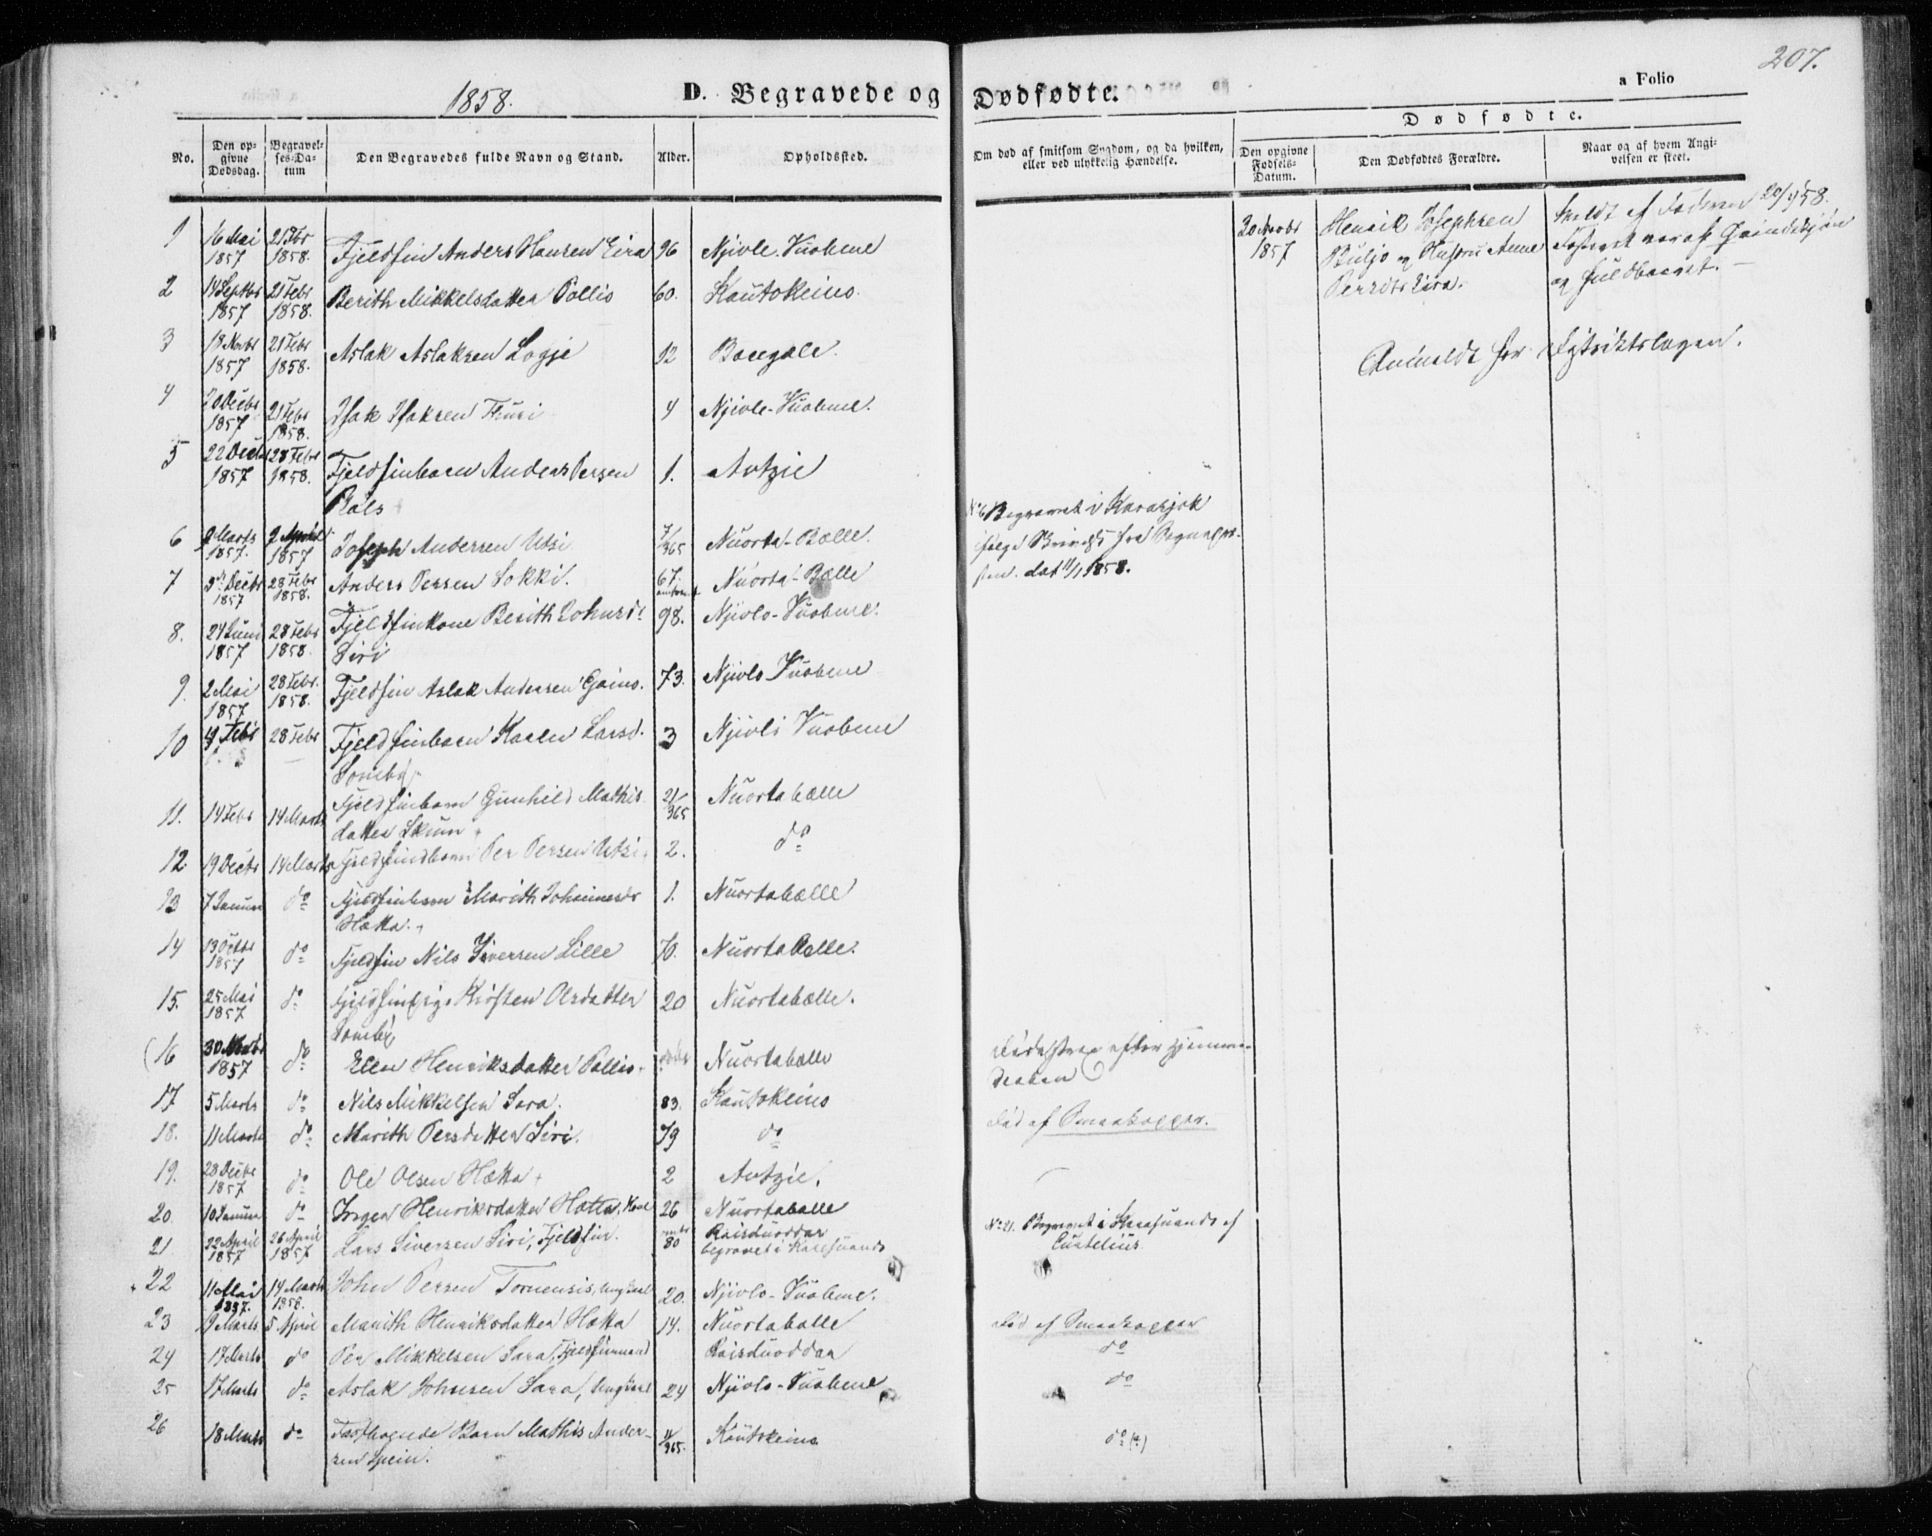 207.
1858.
D. Begravede og Dødfødte.
a Folio
No.
Den opgivne Dødsdag.
Begravelses-Datum
Den Begravedes fulde Navn og Stand.
Alder.
Opholdssted.
Om død af smitsom Sygdom, og da hvilken, eller ved ulykkelig Hændelse.
Dødfødte.
Den opgivne Fødsels-Datum.
Den Dødfødtes Forældre.
Naar og af hvem Angivelsen er skeet.
1 16 Mai 1857 21 Febr 1858. Fjeldfin Anders Hansen Eira 96 Njivle-Vuobme
20 Novbr 1857 Henrik Josephsen Buljo og Hustru Anne Persdtr Eira. Meldt af Faderen 20/4 58. og fuldbaaret.
2 14 Septbr 1857 21 Febr 1858. Berith Mikkelsdatter Pollis 60. Kautokeino.
3 18 Novbr 1857 21 Febr 1858. Aslak Aslaksen Logje 12
Anmeldt for Distriktslægen.
4 20 Decbr 1857 21 Febr 1858. Isak Isaksen Thuri 4 Njivle-Vuobme.
5 22 Decbr 1857 28 Febr 1858. Fjeldfinbarn Anders Persen 1. Avtzie
6 2 Marts 1857. 2 April 1857 Joseph Andersen Utsi 7/365 Nuorta-Bælle.
No 6 Begravet i Karasjok ifølge Beviis fra Sognepresten. dat 11/1 1858.
7 Decbr 1857 28 Febr 1858. Anders Persen Sokki. 67. Nuorta-Bælle
8. 24 Juni 1857 28 Febr 1858. Fjeldfinkone Berith Johnsd. Siri 98. Njivlo-Vuobme.
9. 2 Mai 1857 28 Febr. 1858. Fjeldfin Aslak Andersen Gaino. 73. Njivlo Vuobme
10 4 Febr 28 Febr Fjeldfinbarn Karen Larsd. Somby 3 Njivli Vuobme
11. 14 Febr 14 Marts Fjeldfinbarn Gunhild Mathisdatter Skum 21/365 Nuortabælle
12 19 Decbr 14 Marts Fjeldfindbarn Per Persen Utsi. 2. do
13 7 Januar do Fjeldfinbarn Marith Johannesdr Hætta. 1. Nuortabælle
14 13 Octbr 1857 do Fjeldfin Nils Iversen Lille 70. Nuortabælle.
15. 25 Mai 1857 do Fjeldfinpige Kirsten Olsdatter Somby 20 Nuortabælle.
16 30 Novbr 1857 do Elen Henriksdatter Pollis. Nuortabælle
Døde strax efter Hjemmedaaben
17 5 Marts do Nils Mikkelsen Sara. 83. Kautokeino
18. 11 Marts do Marith Persdatter Siri. 79 do
Død af Smaakopper.
19. 28 Decbr 1857 do Ole Olsen Hætta 2 Avtzie.
20 10 Januar do Inger Henriksdatter Hætta, Kone 26 Nuortabælle
21 22 April 1857 26 April 1857 Lars Siversen Siri, Fjeldfin. 80 Raisduoddar begravet i Karesuando
No 21. Begravet i Karesuando af
22 11 Mai 1857. 14 Marts 1858. John Persen Tornensis, Ungkarl 20. Njivlo-Vuobme.
23 9 Marts 5 April Marith Henriksdatter Hætta 14. Nuortabælle
Død af Smaakopper
24 17 Marts do Per Mikkelsen Sara, Fjeldfinmand Raisduoddar
do
25 17 Marts do Aslak Johnsen Sara, Ungkarl 24 Njivlo-Vuobme
do
26 18 Marts do Fastboende Barn Mathis Andersen Spein. 11/365. Kautokeino
do (?)